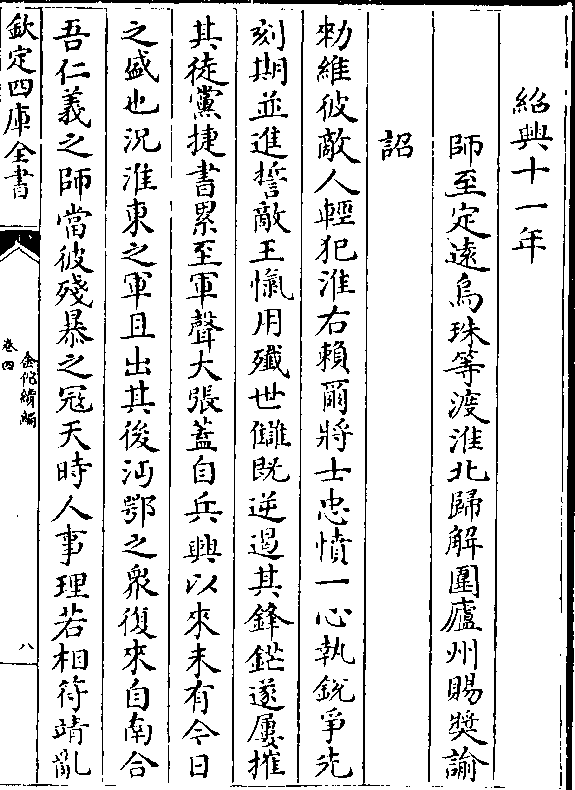 紹興十一年
師至定遠烏珠等渡淮北歸解圍廬州賜奨諭
詔
勅維彼敵人輕犯淮右賴爾將士忠憤一心執鋭爭先
刻期並進誓敵王愾用殲世讎既逆遏其鋒鋩遂屢摧
其徒黨捷書累至軍聲大張蓋自兵興以來未有今日
之盛也況淮東之軍且出其後沔鄂之衆復來自南合
吾仁義之師當彼殘暴之冦天時人事理若相符靖亂
欽定四庫全書
金佗續編
卷四
八